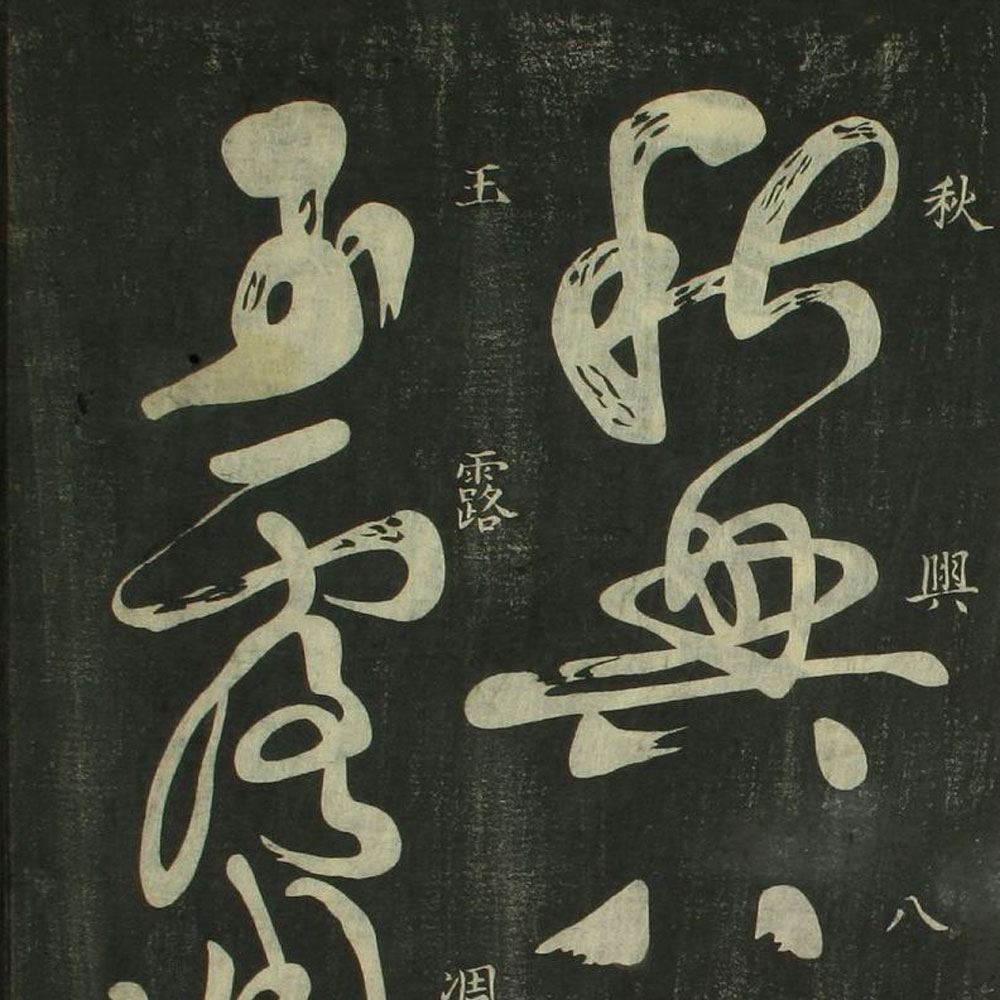 秋興八
秋興八
王露凋
玉露凋